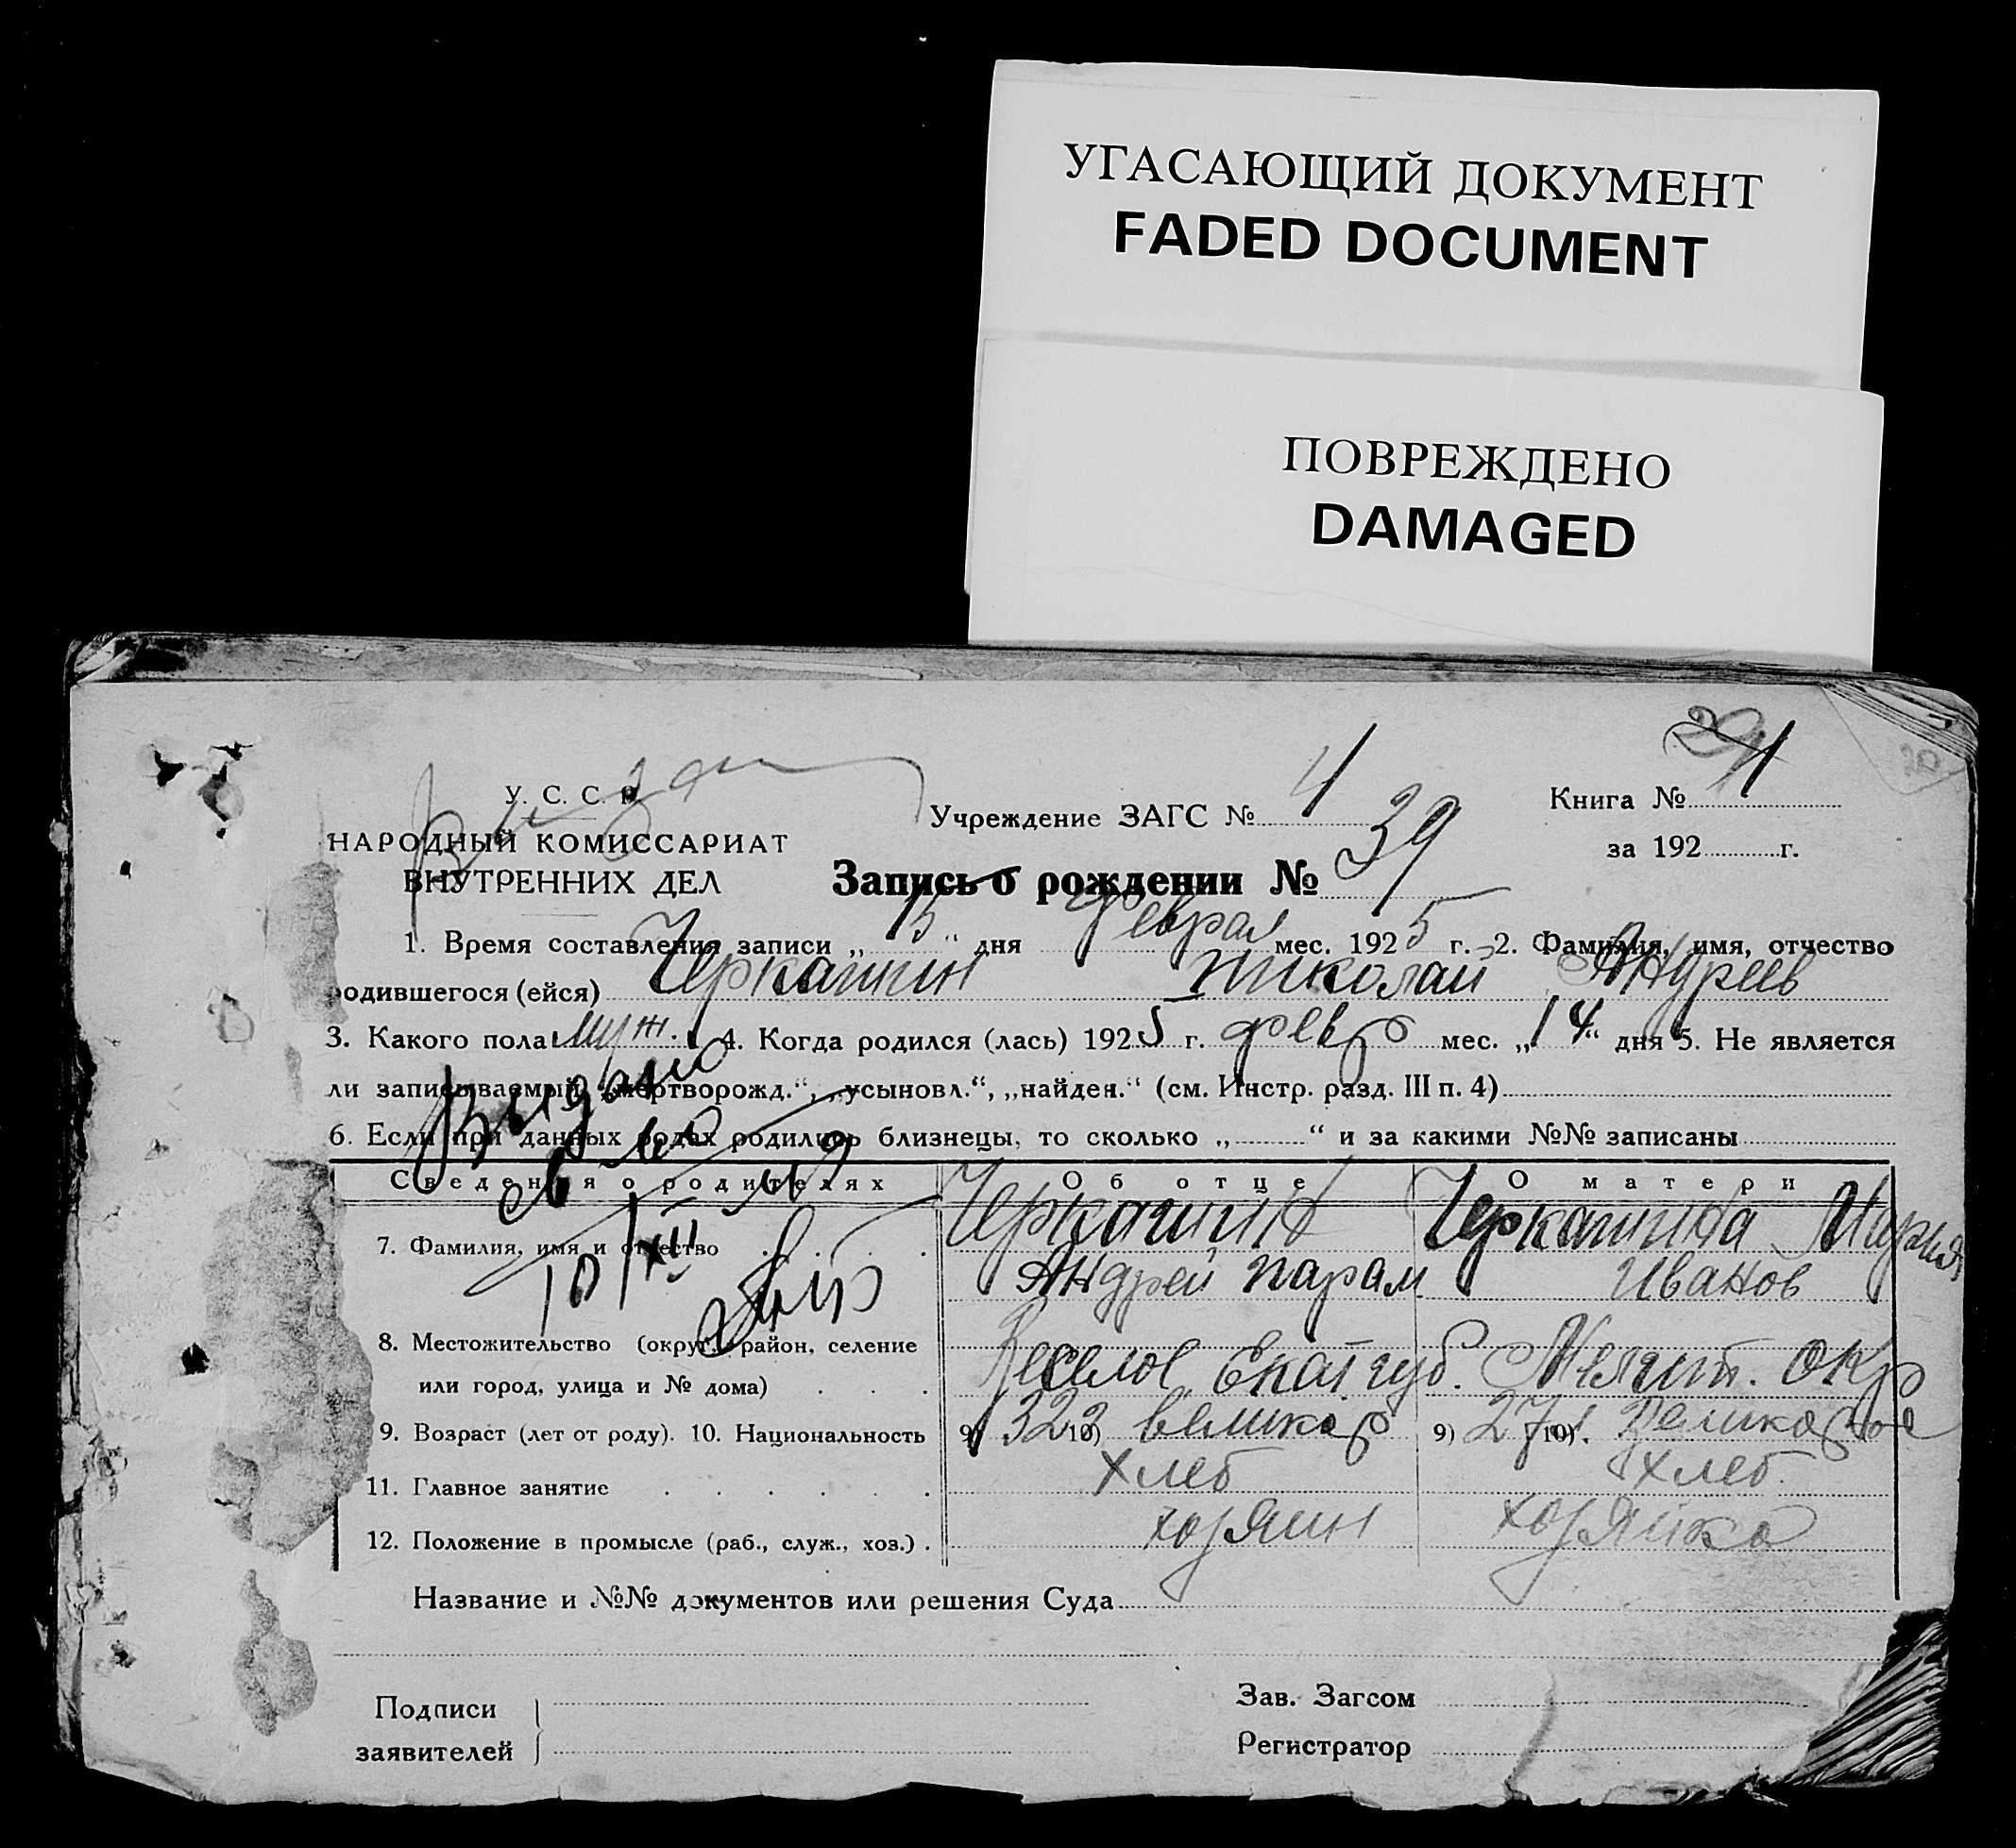 УГАСАЮЩИЙ ДОКУМЕНТ
FADED DOCUMENT
ПОВРЕЖДЕНО
DAMAGED
У. С. С. Р.
НАРОДНЫЙ КОМИССАРИАТ
ВНУТРЕННИХ ДЕЛ
Учреждение ЗАГС № 4
Книга № 1
за 192 г.
Запись о рождении № 39
1. Время составления записи „15“ дня феврал мес. 1925 г. 2. Фамилия, имя, отчество
родившегося (ейся) Черкашин Николай Андреев
3. Какого пола муж. 4. Когда родился (лась) 1925 г. февр мес. „14“ дня 5. Не является
ли записываемый „мертворожд.“, „усыновл.“, „найден.“ (см. Инстр. разд. III п. 4)
6. Если при данных родах родились близнецы, то сколько „ “ и за какими №№ записаны
Выдано
10/XII
Сведения о родителях Об отце О матери
7. Фамилия, имя и отчество Черкашин Черкашина Мария
Андрей Харам Иванов
8. Местожительство (округ, район, селение
или город, улица и № дома) Веселое Екат. губ. Мелит. окр
9. Возраст (лет от роду). 10. Национальность 9) 32 10) великор 9) 27 10) Великорос
11. Главное занятие хлеб хлеб.
12. Положение в промысле (раб., служ., хоз.) хозяин хозяйка
Название и №№ документов или решения Суда
Подписи
заявителей
Зав. Загсом
Регистратор